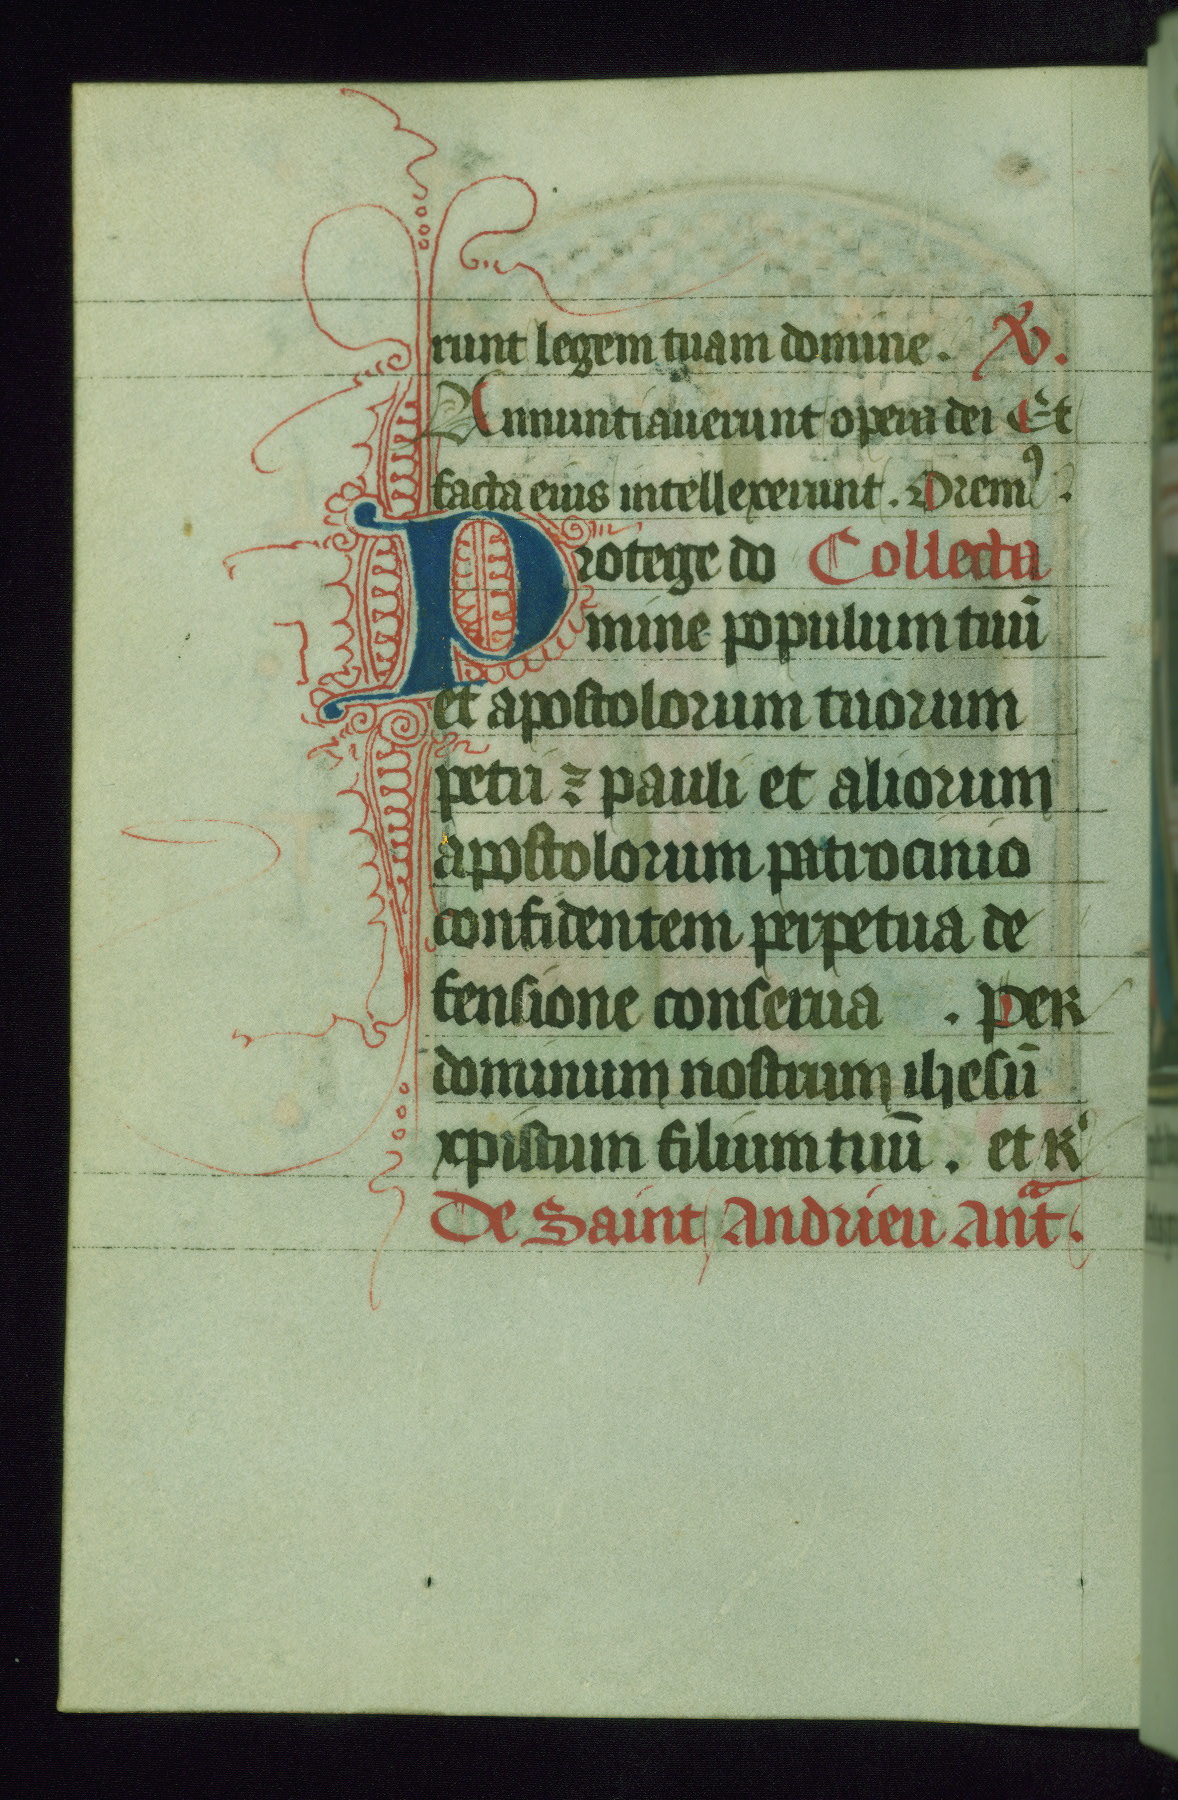 runt legem tuam domine. V.
Annuntiauerunt opera dei Et
facta eius intellexerunt. Orem⁹.
Protege do Collecta
mine populum tuū
et apostolorum tuorum
petri ⁊ pauli et aliorum
apostolorum patrocinio
confidentem perpetua de
fensione conserua . Per
dominum nostrum ihesū
xpistum filium tuū. et R
De Saint Andrieu Ant̄.